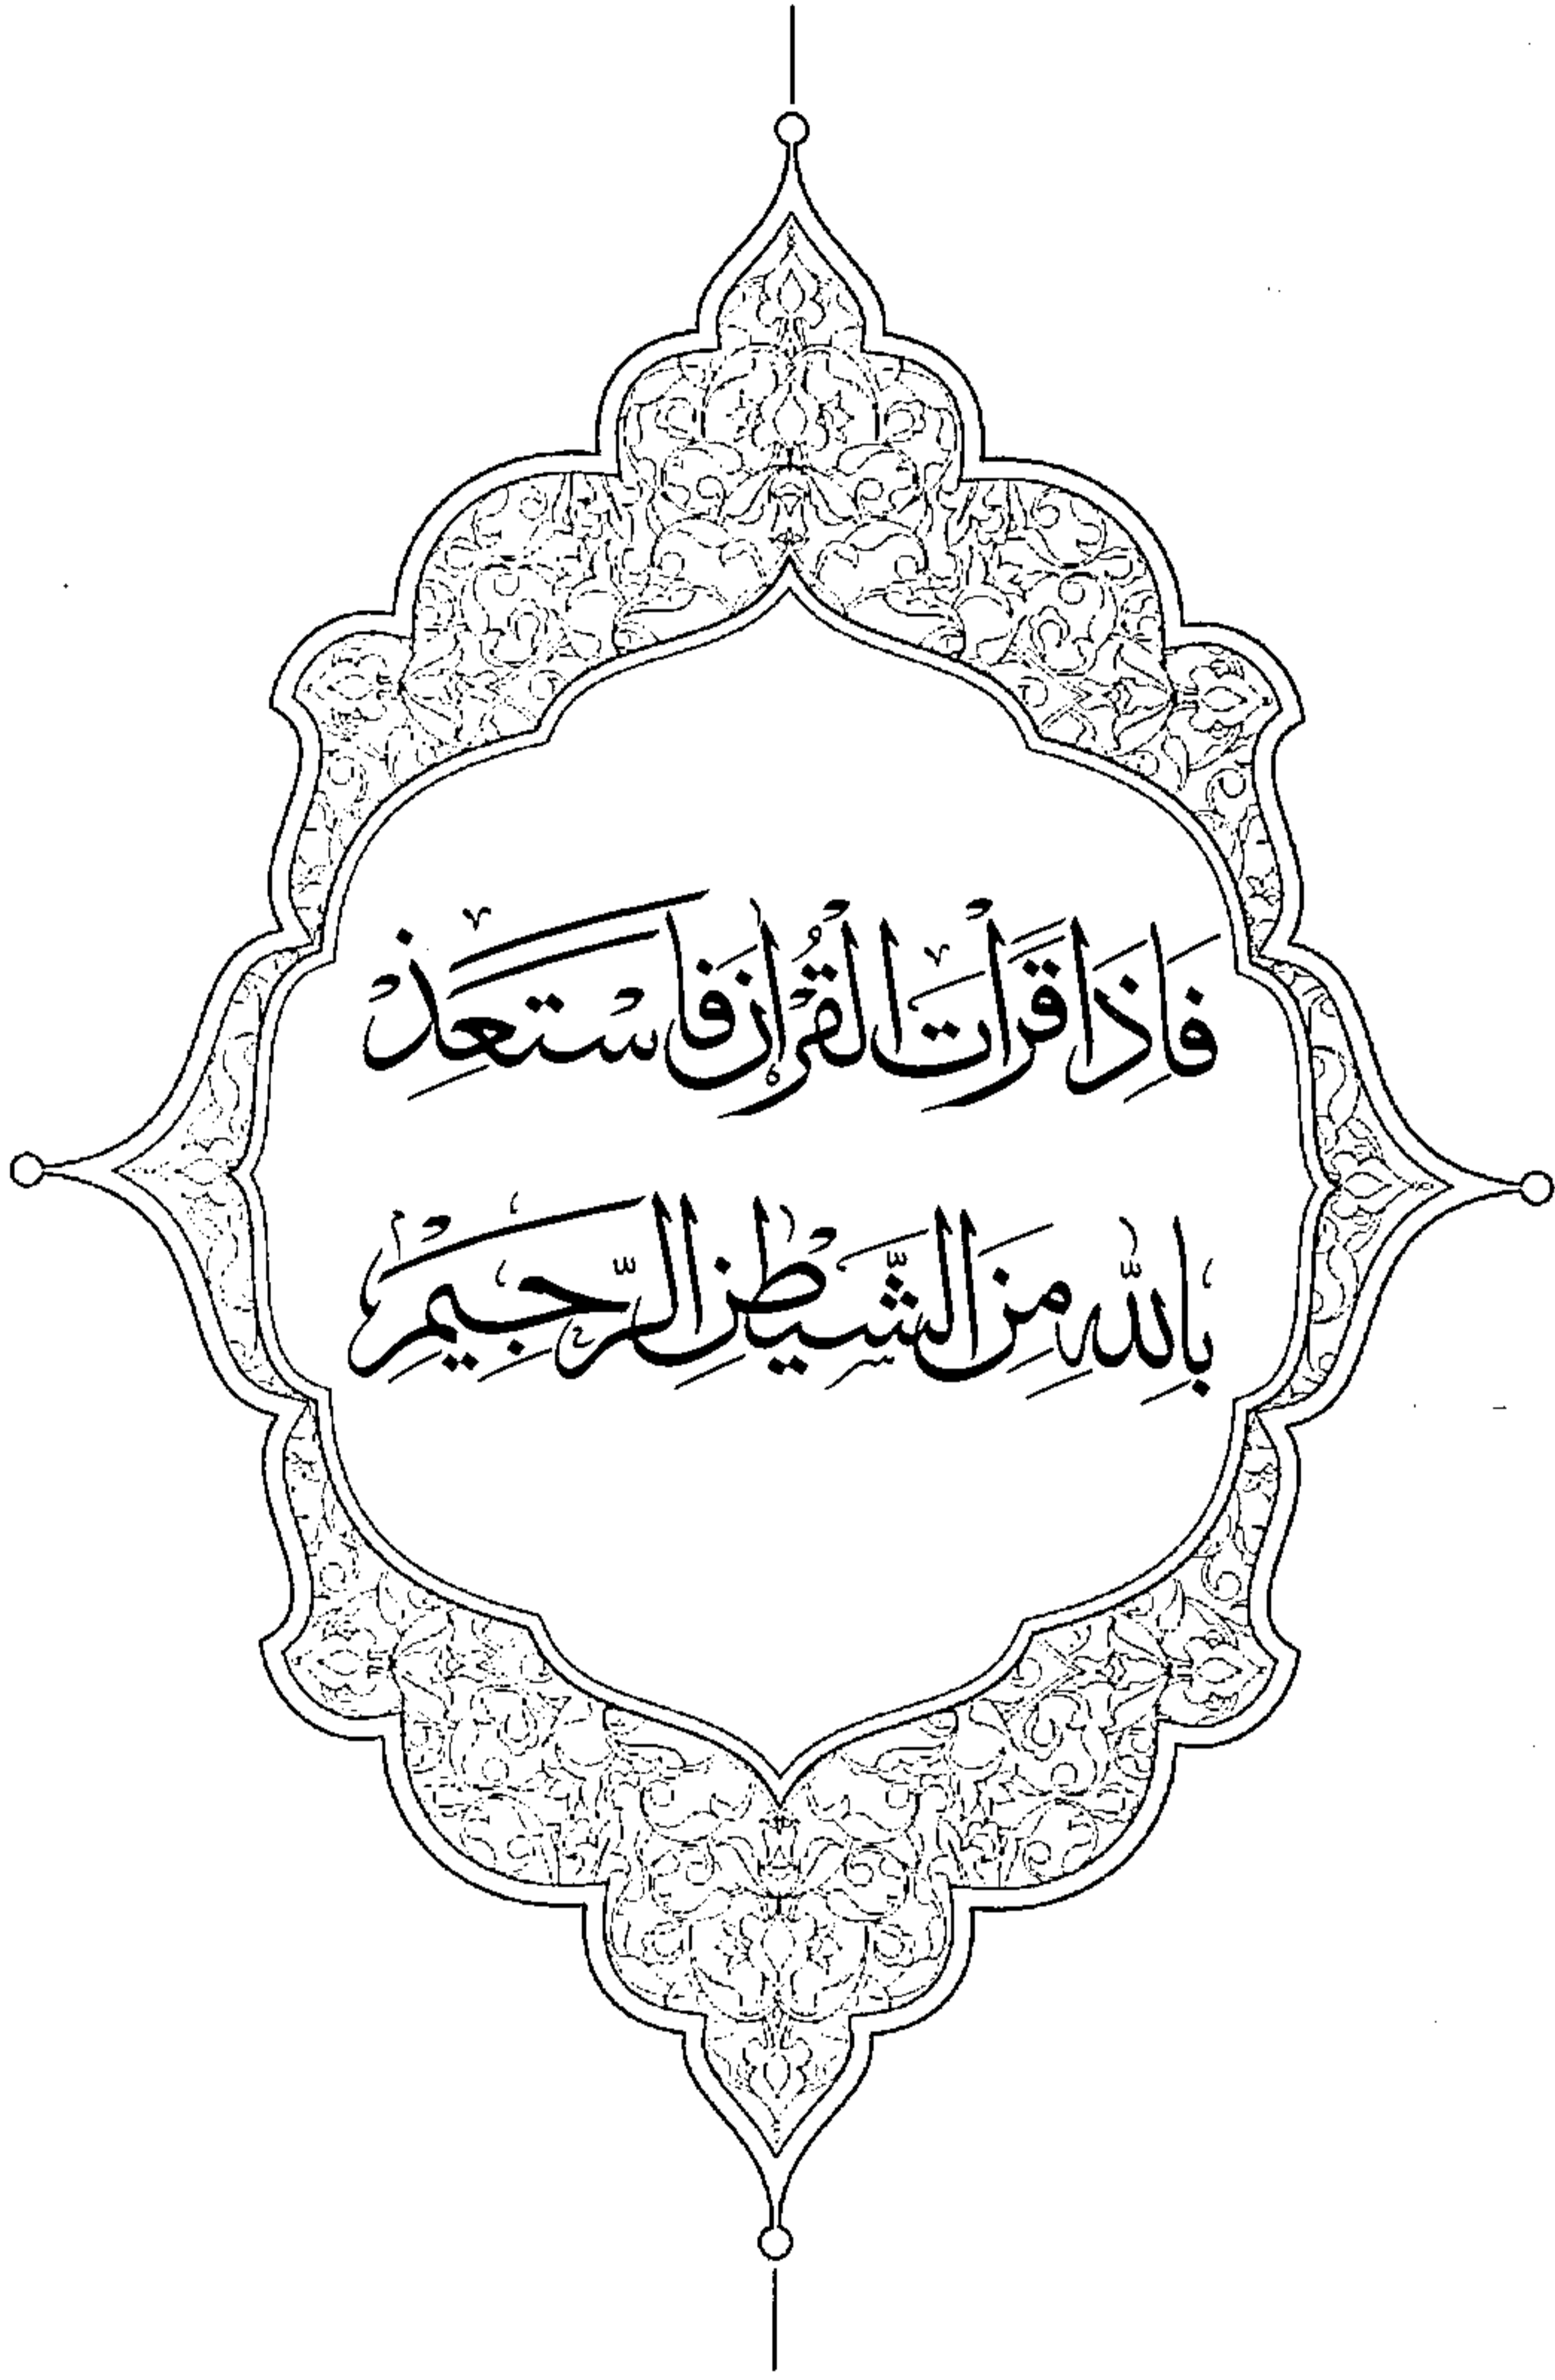 فَاِذَا قَرَاْتَ الْقُرْاٰنَ فَاسْتَعِذْ
بِاللّٰهِ مِنَ الشَّيْطٰنِ الرَّجِيْمِ